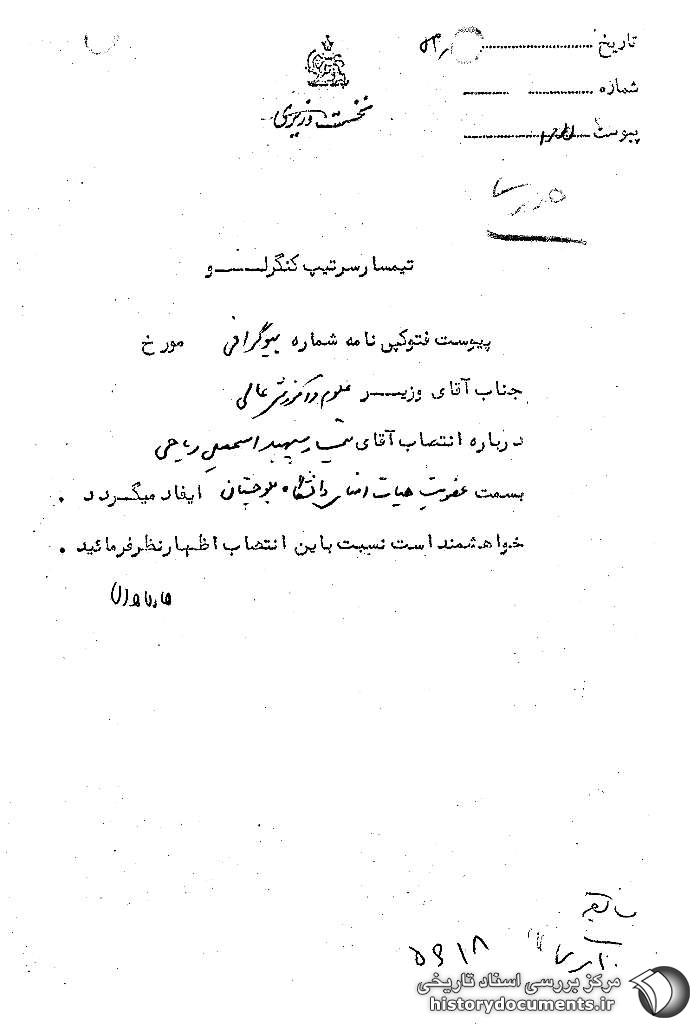 تاریخ
شماره
پیوست دارد
نخست وزیری
تیمسار سرتیپ کنگرلو
پیوست فتوکپی نامه شماره بیوگرافی مورخ
جناب آقای وزیر علوم و آموزش عالی
درباره انتصاب آقای تیمسار سپهبد اسمعیل ریاحی
بسمت عضویت هیات امنای دانشگاه بلوچستان ایفاد میگردد .
خواهشمند است نسبت باین انتصاب اظهارنظر فرمائید .
۵۶۱۸
مرکز بررسی اسناد تاریخی
historydocuments.ir